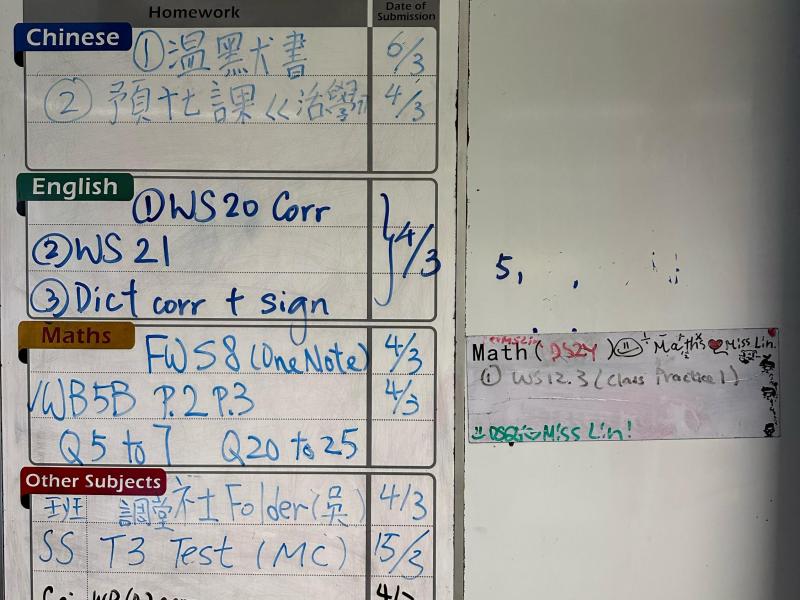 Homework
Date of Submission
Chinese
① 温默犬書 6/3
② 預忙課 << 治學 4/3
English
① WS20 Corr
② WS 21
③ Dict corr + sign
4/3
Maths
FWS8 (OneNote) 4/3
√WB5B P.2 P.3 4/3
Q5 to 7 Q20 to 25
Other Subjects
班 調堂 社 Folder (吳) 4/3
SS T3 Test (MC) 15/3
5,
Math (DS2Y) Maths ❤ Miss Lin.
① WS12.3 (Class Practice 1)
Miss Lin!